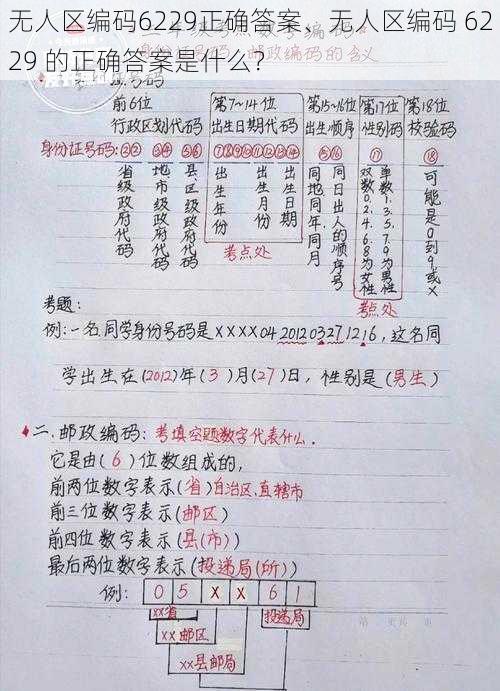 无人区编码6229正确答案、无人区编码 62
29 的正确答案是什么?
前6位 第7~14位 第15~16位 第17位 第18位
行政区划代码 出生日期代码 出生顺序 性别码 校验码
身份证号码:①② ③④ ⑤⑥ ⑦⑧⑨⑩⑪⑫⑬⑭ ⑮⑯ ⑰ ⑱
省级政府代码
地市级政府代码
县区级政府代码
出生年份
出生月份
出生日期
同年同月
同日出人的顺序号
双数0.2.4.6.8为女性
单数1.3.5.7.9为男性
可能是0到9或X
考点处
考点处
考题:
例:一名同学身份号码是XXXX04 20120327 1216,这名同
学出生在(2012)年(3)月(27)日,性别是(男生)
二.邮政编码:考填空题数字代表什么.
它是由(6)位数组成的,
前两位数字表示(省)自治区,直辖市
前三位数字表示(邮区)
前四位数字表示(县(市))
最后两位数字表示(投递局(所))
例: 0 5 X X 6 1
xx省 投递局
xx邮区
xx县邮局